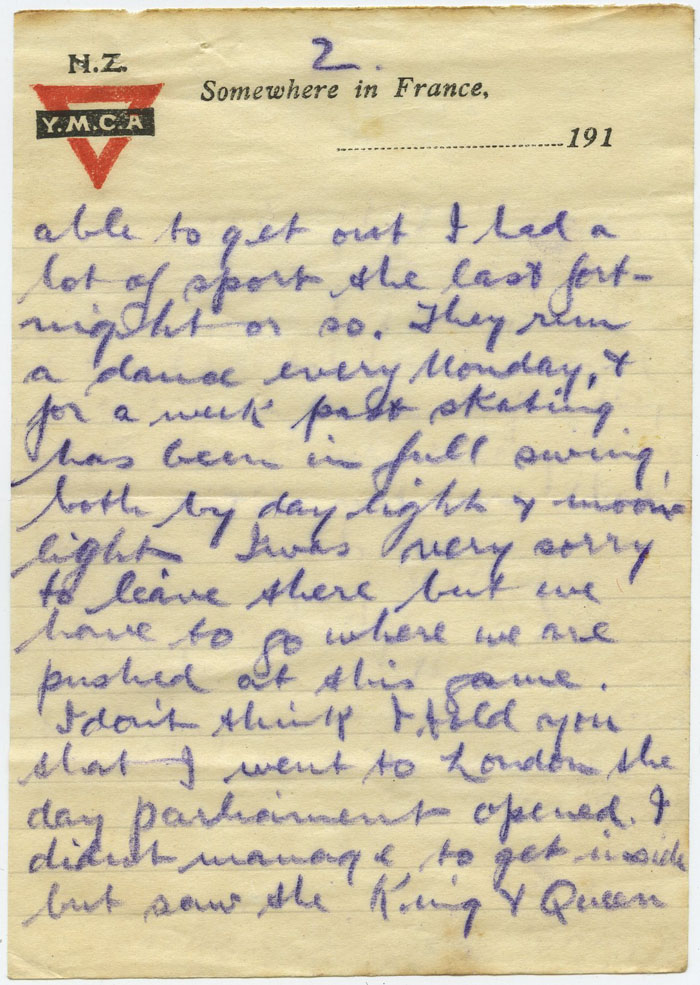 2.
N.Z.
Y.M.C.A
Somewhere in France,
191
able to get out I had a
lot of sport the last fort-
night or so. They run
a dance every Monday, &
for a week past skating
has been in full swing,
both by day light & moon
light I was very sorry
to leave there but we
have to go where we are
pushed at this game.
I don't think I told you
that I went to London the
day parliament opened. I
didnt manage to get inside
but saw the King & Queen